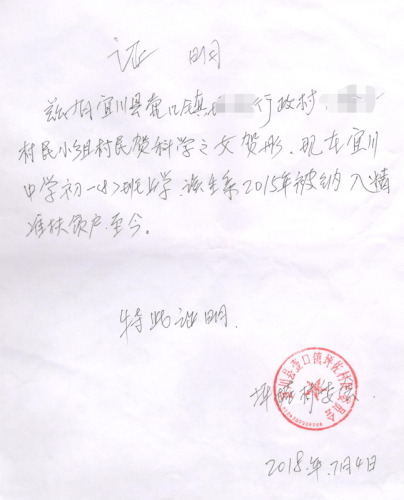 证 明
兹有宜川县壶口镇 行政村
村民小组村民贺科学之女贺彤、现在宜川
中学初一<8>班上学.该生系2015年被纳入精
准扶贫户至今。
特此证明.
宜川县壶口镇 村
村委会
2018年.7月4日